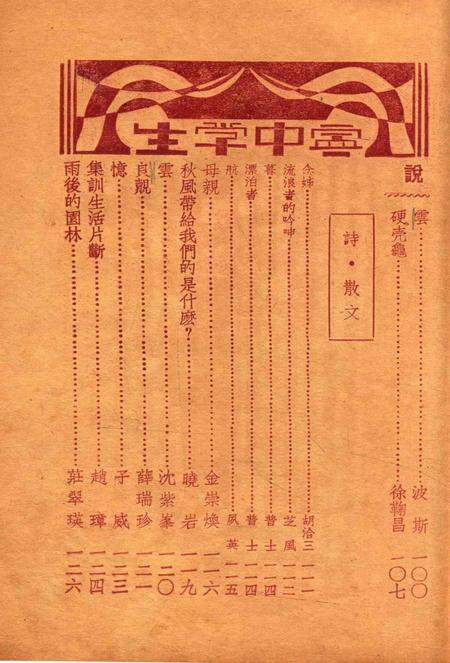 寧中學生
說
雲⋯⋯波斯 一〇〇
硬壳龜⋯⋯徐鞠昌 一〇七
詩・散文
余姊⋯⋯胡洽三 一一一
流浪者的吟呻⋯⋯芝風 一一二
暮⋯⋯普士 一一四
漂泊者⋯⋯普士 一一四
航⋯⋯夙英 一一五
母親⋯⋯金崇煥 一一六
秋風帶給我們的是什麼？⋯⋯曉岩 一一九
雲⋯⋯沈紫峯 一二〇
良覿⋯⋯薛瑞珍 一二一
憶⋯⋯子威 一二三
集訓生活片斷⋯⋯趙璋 一二四
雨後的園林⋯⋯莊翠瑛 一二六